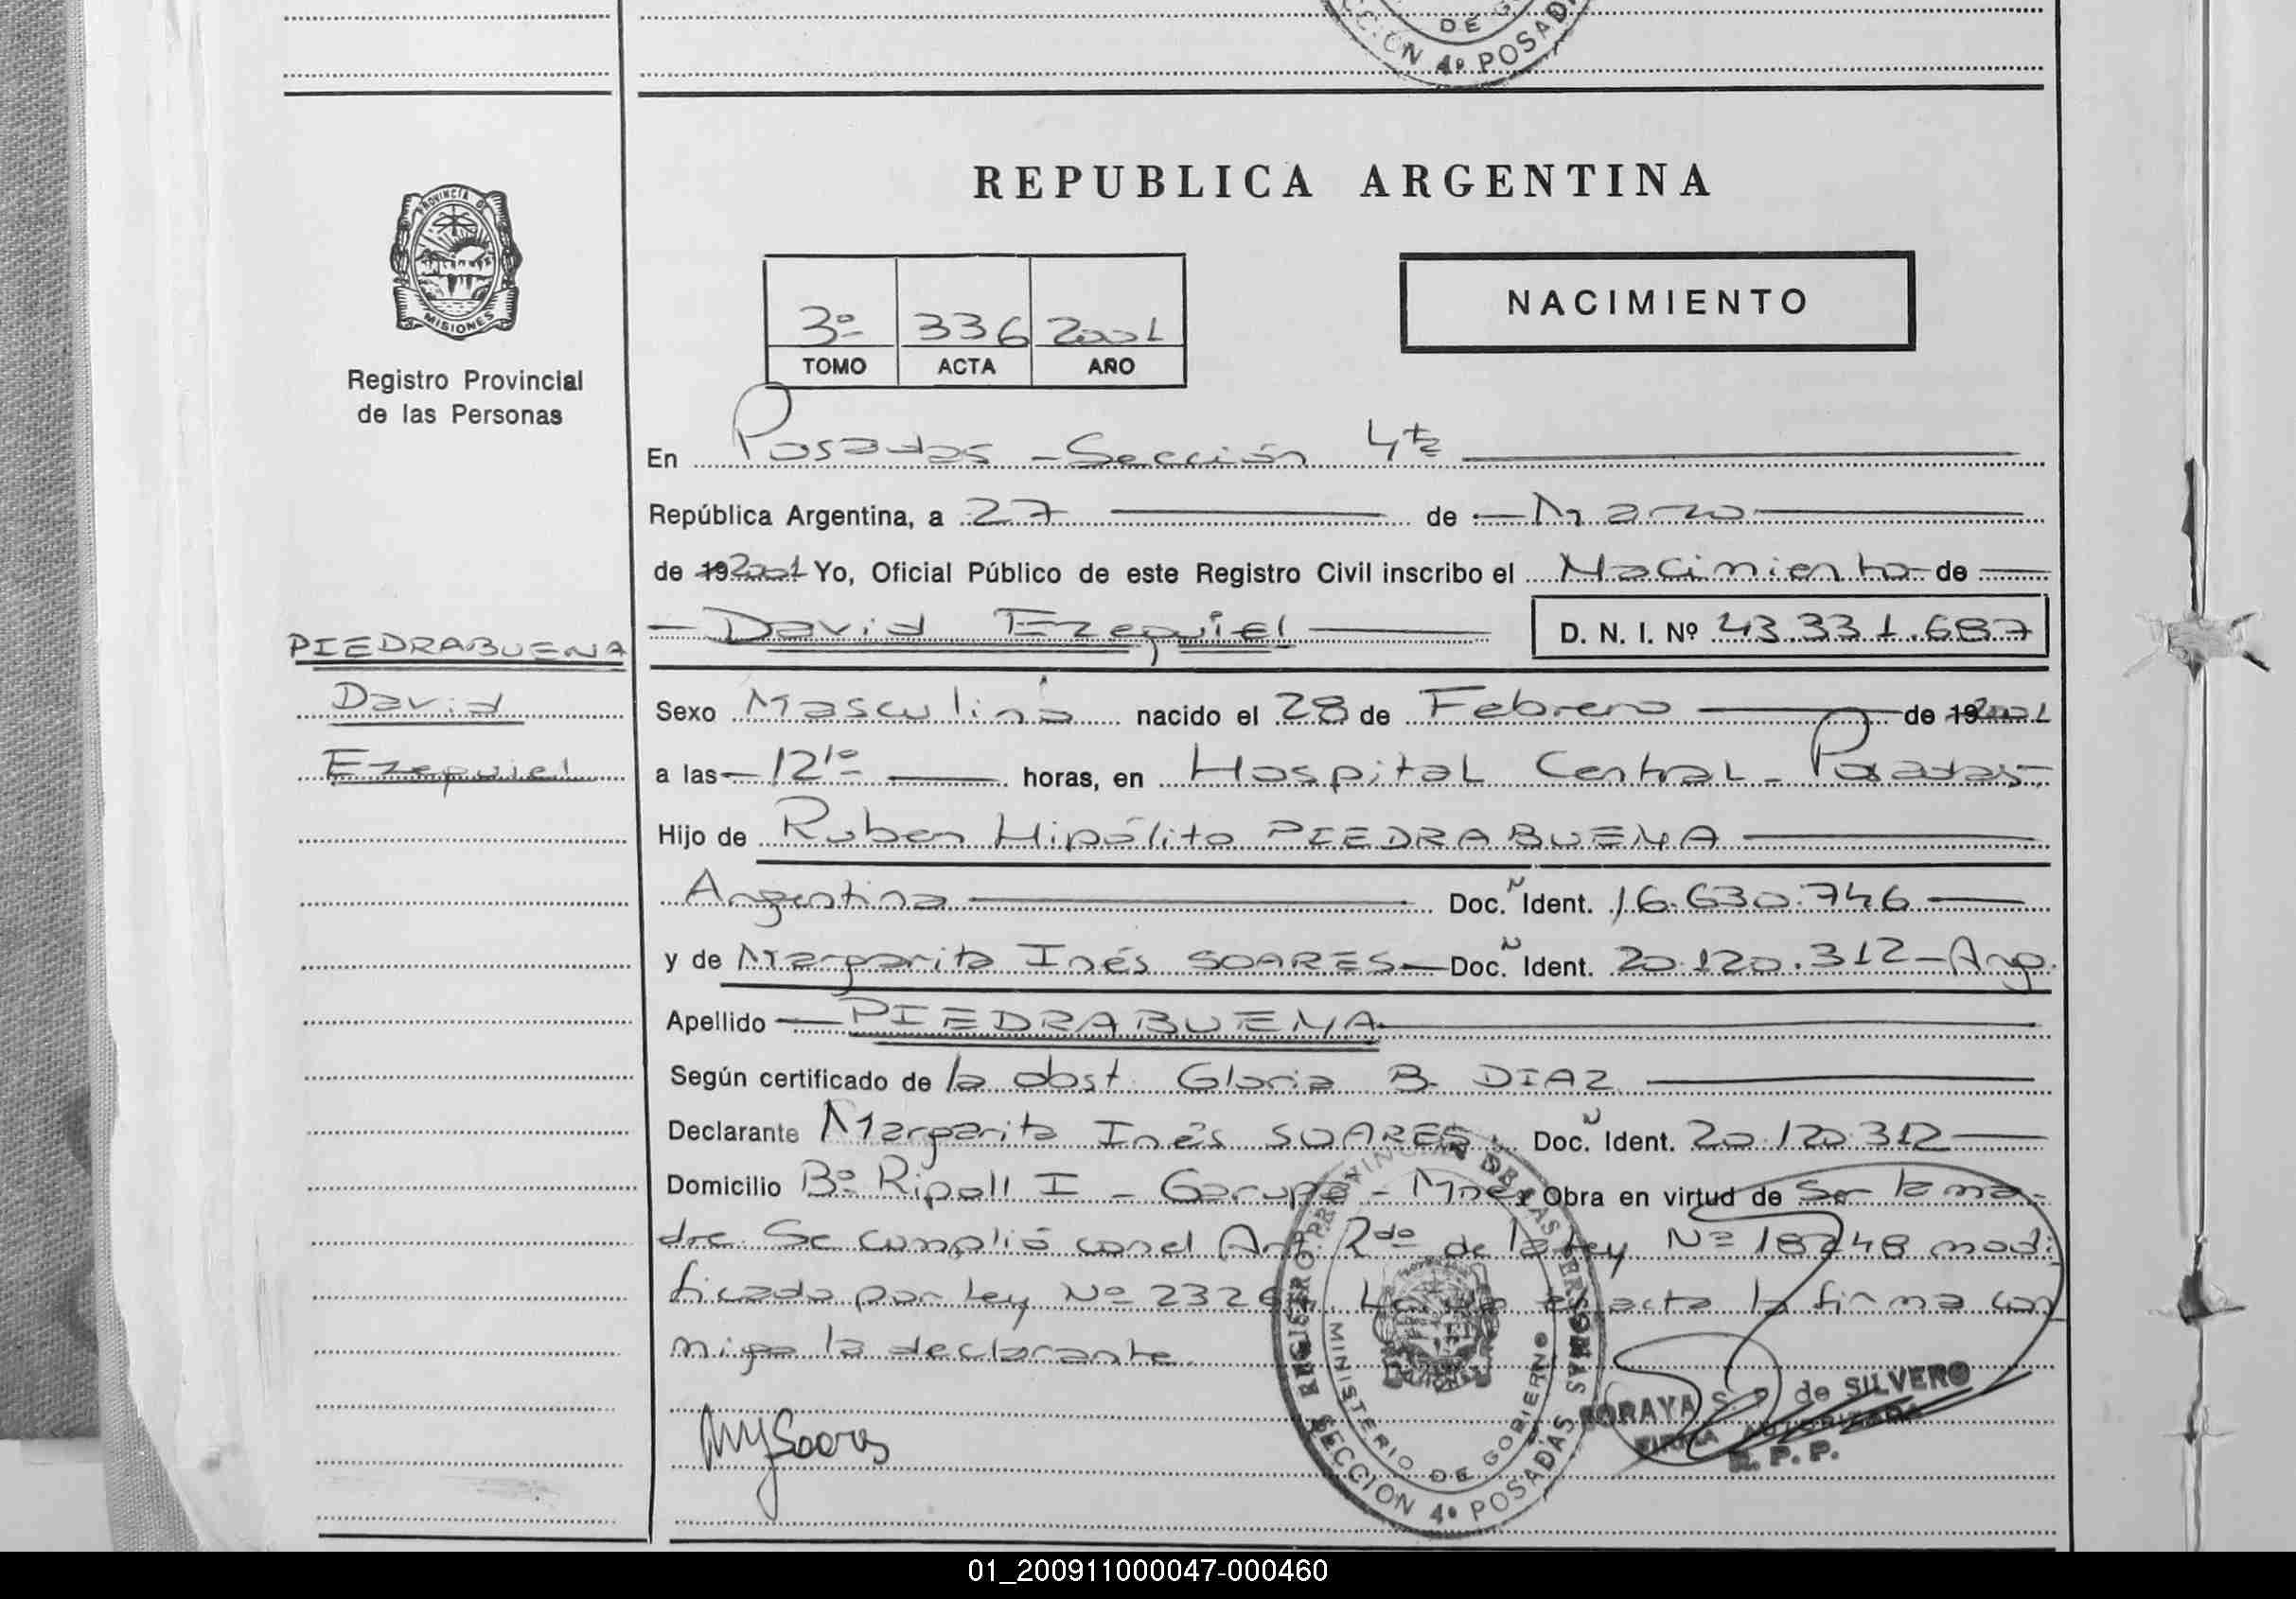 DE G
CCION 4º POSAD
REPUBLICA ARGENTINA
PROVINCIA DE
MISIONES
Registro Provincial
de las Personas
3º 336 2001
TOMO ACTA AÑO
NACIMIENTO
En Posadas - Sección 4ta
República Argentina, a 27 de Marzo
de 19 2001 Yo, Oficial Público de este Registro Civil inscribo el Nacimiento de
David Ezequiel D. N. I. Nº 43.331.687
PIEDRABUENA
David
Ezequiel
Sexo Masculino nacido el 28 de Febrero de 19 2001
a las 12 10 horas, en Hospital Central - Posadas
Hijo de Ruben Hipólito PIEDRABUENA
Argentina Doc. Ñ Ident. 16.630.746
y de Margarita Inés SOARES Doc. Ñ Ident. 20.120.312 - Arg.
Apellido PIEDRABUENA
Según certificado de la obst. Gloria B. DIAZ
Declarante Margarita Inés SOARES Doc. Ñ Ident. 20.120.312
Domicilio Bº Ripoll I - Garupá - Mnes Obra en virtud de Ser la ma-
dre. Se cumplió con el Art. 2do de la Ley Nº 18248 modi
ficado por Ley Nº 2326 acta la firma con
migo la declarante.
MYSoares
REGISTRO PROVINCIAL DE LAS PERSONAS
MINISTERIO DE GOBIERNO
SECCION 4º POSADAS
SORAYA S. de SILVERO
FIRMA AUTORIZADA
R. P. P.
01_200911000047-000460